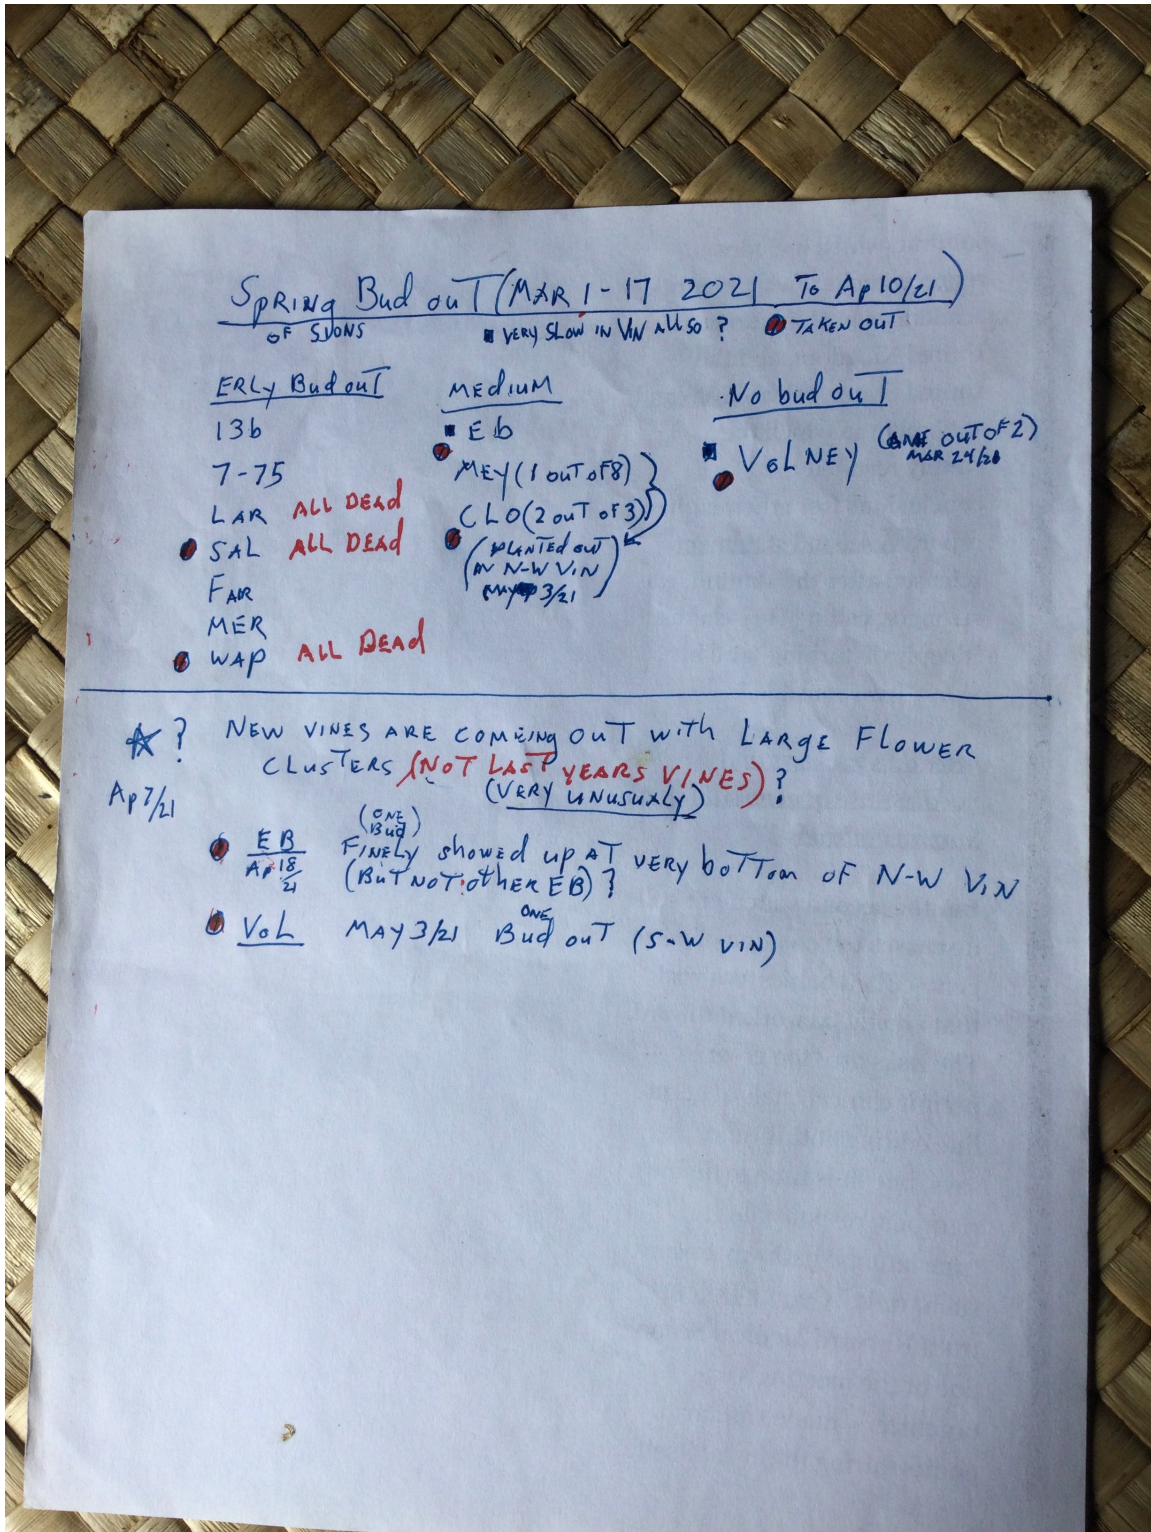 SPRING Bud ouT (MAR 1-17 2021 To Ap 10/21)
OF SIONS ■ VERY SLOW IN VIN ALL SO ? TAKEN OUT
ERLy Bud ouT
13b
7-75
LAR ALL DEAd
SAL ALL DEAd
FAIR
MER
WAP ALL DEAd
MEdiuM
■ Eb
MEY (1 ouT oF 8)
CLO (2 ouT oF 3)
(PLANTEd ouT
IN N-W VIN
MAY 3/21)
No bud ouT
■ VOLNEY ( OUT OF 2)
MAR 24/21
☆? NEW VINES ARE COMEING OUT with LARGE FLOWER
CLUSTERS (NOT LAST YEARS VINES)?
Ap 7/21 (VERY UNUSUALY)
(ONE Bud)
EB FINELY showEd up AT VERY boTTom OF N-W VIN
Ap 18/21 (BuT NOT OTHER EB)?
ONE
VoL MAY 3/21 Bud ouT (S-W VIN)